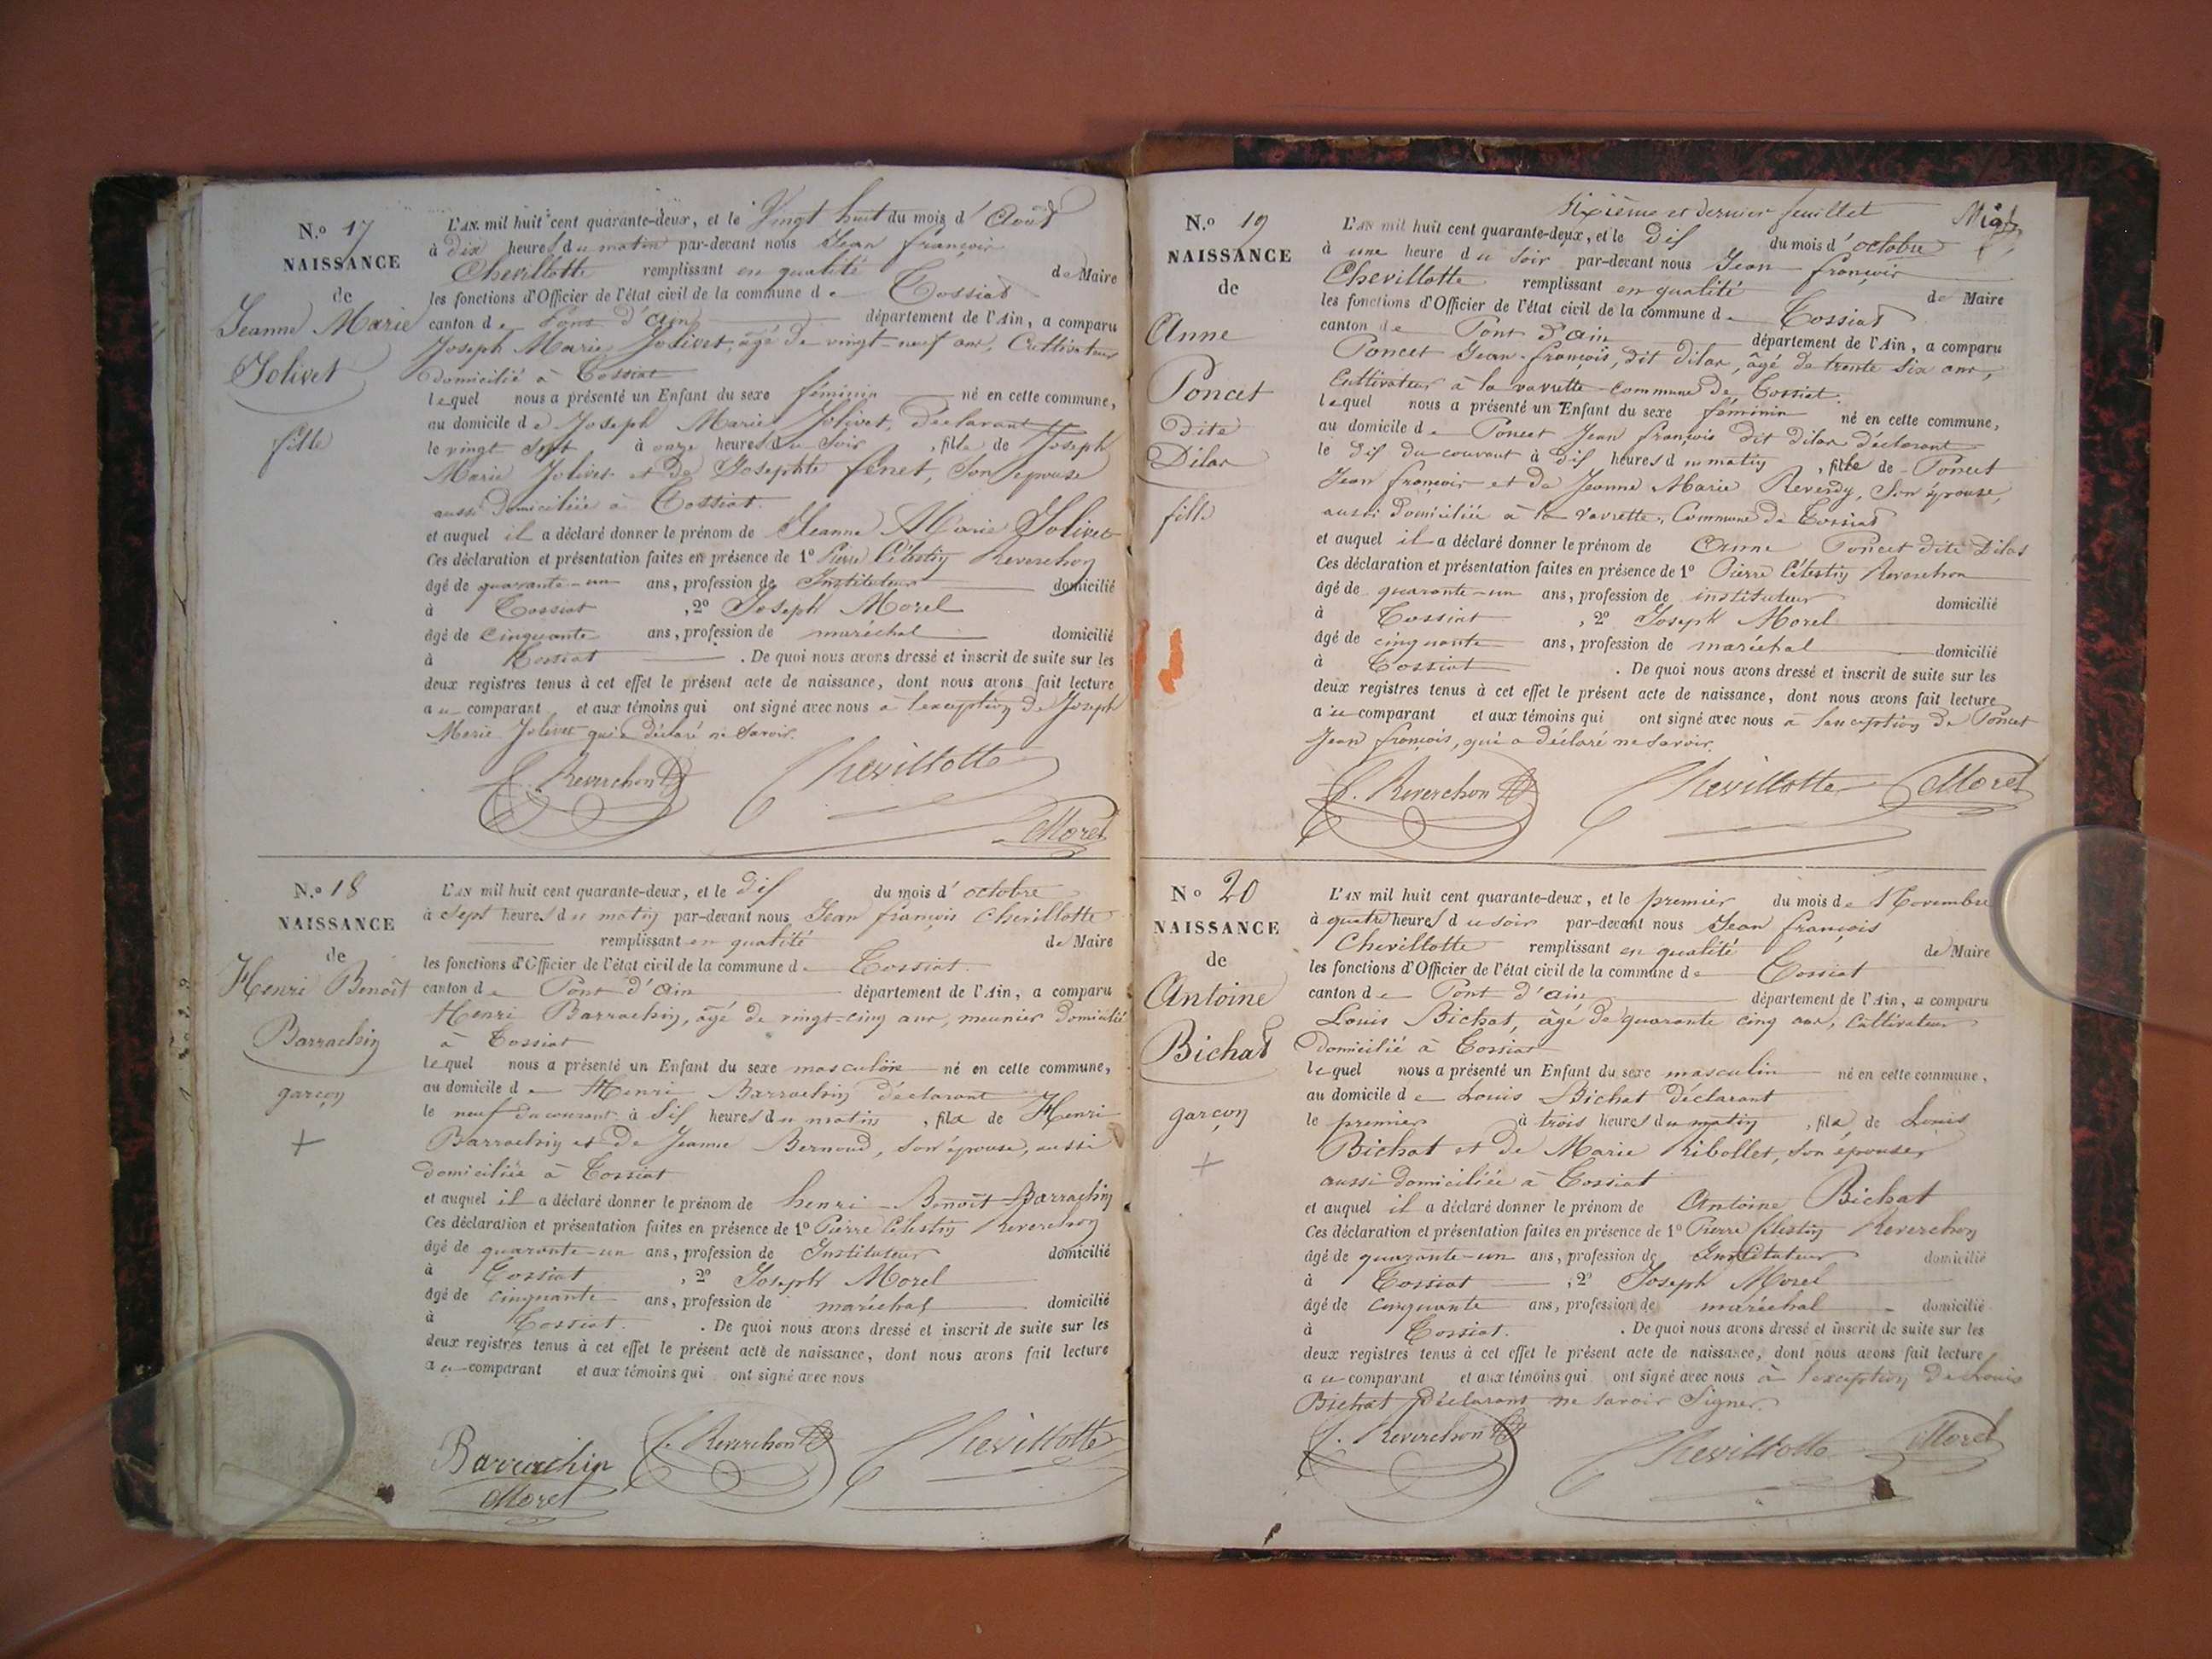 N.o 17
NAISSANCE
de
Jeanne Marie
Jolivet
fille
L'AN mil huit cent quarante-deux, et le Vingt huit du mois d' Août
à dix heures du matin par-devant nous Jean françois
Chevillotte remplissant en qualité de Maire
les fonctions d'Officier de l'état civil de la commune de Tossiat
canton de Pont d'ain département de l'Ain, a comparu
Joseph Marie Jolivet, âgé de vingt-neuf ans, Cultivateur
domicilié à Tossiat
lequel nous a présenté un Enfant du sexe féminin né en cette commune,
au domicile de Joseph Marie Jolivet, déclarant
le vingt sept à onze heures du soir, fille de Joseph
Marie Jolivet et de Josephte fénet, son épouse
aussi domiciliée à Tossiat.
et auquel il a déclaré donner le prénom de Jeanne Marie Jolivet
Ces déclaration et présentation faites en présence de 1o Pierre Célestin Reverchon
âgé de quarante-un ans, profession de Instituteur domicilié
à Tossiat, 2o Joseph Morel
âgé de cinquante ans, profession de maréchal domicilié
à Tossiat. De quoi nous avons dressé et inscrit de suite sur les
deux registres tenus à cet effet le présent acte de naissance, dont nous avons fait lecture
au comparant et aux témoins qui ont signé avec nous à l'exception de Joseph
Marie Jolivet qui a déclaré ne savoir.
C. Reverchon Chevillotte
Morel
N.o 18
NAISSANCE
de
Henri Benoît
Barrachin
garçon
+
L'AN mil huit cent quarante-deux, et le dix du mois d' octobre
à sept heures du matin par-devant nous Jean françois Chevillotte
remplissant en qualité de Maire
les fonctions d'Officier de l'état civil de la commune de Tossiat.
canton de Pont d'ain département de l'Ain, a comparu
Henri Barrachin, âgé de vingt-cinq ans, meunier domicilié
à Tossiat
lequel nous a présenté un Enfant du sexe masculin né en cette commune,
au domicile de Henri Barrachin déclarant
le neuf du courant à dix heures du matin, fils de Henri
Barrachin et de Jeanne Bernoud, son épouse, aussi
domiciliée à Tossiat
et auquel il a déclaré donner le prénom de henri - Benoît Barrachin
Ces déclaration et présentation faites en présence de 1o Pierre Célestin Reverchon
âgé de quarante-un ans, profession de Instituteur domicilié
à Tossiat, 2o Joseph Morel
âgé de cinquante ans, profession de maréchal domicilié
à Tossiat. De quoi nous avons dressé et inscrit de suite sur les
deux registres tenus à cet effet le présent acte de naissance, dont nous avons fait lecture
au comparant et aux témoins qui ont signé avec nous
Barrachin C. Reverchon Chevillotte
Morel
Sixième et dernier feuillet
N.o 19
NAISSANCE
de
Anne
Poncet
dite
Dilar
fille
L'AN mil huit cent quarante-deux, et le dix du mois d' octobre
à une heure du soir par-devant nous Jean françois
Chevillotte remplissant en qualité de Maire
les fonctions d'Officier de l'état civil de la commune de Tossiat
canton de Pont d'ain département de l'Ain, a comparu
Poncet Jean-françois, dit dilar, âgé de trente six ans,
cultivateur à la vavrette commune de Tossiat.
lequel nous a présenté un Enfant du sexe féminin né en cette commune,
au domicile de Poncet Jean françois dit dilar déclarant
le dix du courant à dix heures du matin, fille de Poncet
Jean françois et de Jeanne Marie Reverdy, son épouse,
aussi domiciliée à la vavrette, Commune de Tossiat
et auquel il a déclaré donner le prénom de Anne Poncet dite Dilar
Ces déclaration et présentation faites en présence de 1o Pierre Célestin Reverchon
âgé de quarante-un ans, profession de instituteur domicilié
à Tossiat, 2o Joseph Morel
âgé de cinquante ans, profession de maréchal domicilié
à Tossiat. De quoi nous avons dressé et inscrit de suite sur les
deux registres tenus à cet effet le présent acte de naissance, dont nous avons fait lecture
au comparant et aux témoins qui ont signé avec nous à l'exception de Poncet
Jean françois, qui a déclaré ne savoir.
C. Reverchon Chevillotte Morel
No 20
NAISSANCE
de
Antoine
Bichat
garçon
+
L'AN mil huit cent quarante-deux, et le premier du mois de Novembre
à quatre heures du soir par-devant nous Jean françois
Chevillotte remplissant en qualité de Maire
les fonctions d'Officier de l'état civil de la commune de Tossiat
canton de Pont d'ain département de l'Ain, a comparu
Louis Bichat, âgé de quarante cinq ans, Cultivateur
domicilié à Tossiat
lequel nous a présenté un Enfant du sexe masculin né en cette commune,
au domicile de Louis Bichat déclarant
le premier à trois heures du matin, fils de Louis
Bichat et de Marie Ribollet, son épouse,
aussi domiciliée à Tossiat
et auquel il a déclaré donner le prénom de Antoine Bichat
Ces déclaration et présentation faites en présence de 1o Pierre Célestin Reverchon
âgé de quarante-un ans, profession de Instituteur domicilié
à Tossiat, 2o Joseph Morel
âgé de cinquante ans, profession de maréchal domicilié
à Tossiat. De quoi nous avons dressé et inscrit de suite sur les
deux registres tenus à cet effet le présent acte de naissance, dont nous avons fait lecture
au comparant et aux témoins qui ont signé avec nous à l'exception de Louis
Bichat déclarant ne savoir signer.
C. Reverchon Chevillotte Morel